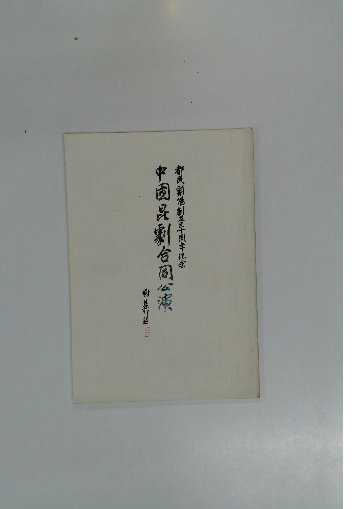 都民劇場創立五十周年記念
中國昆劇合同公演